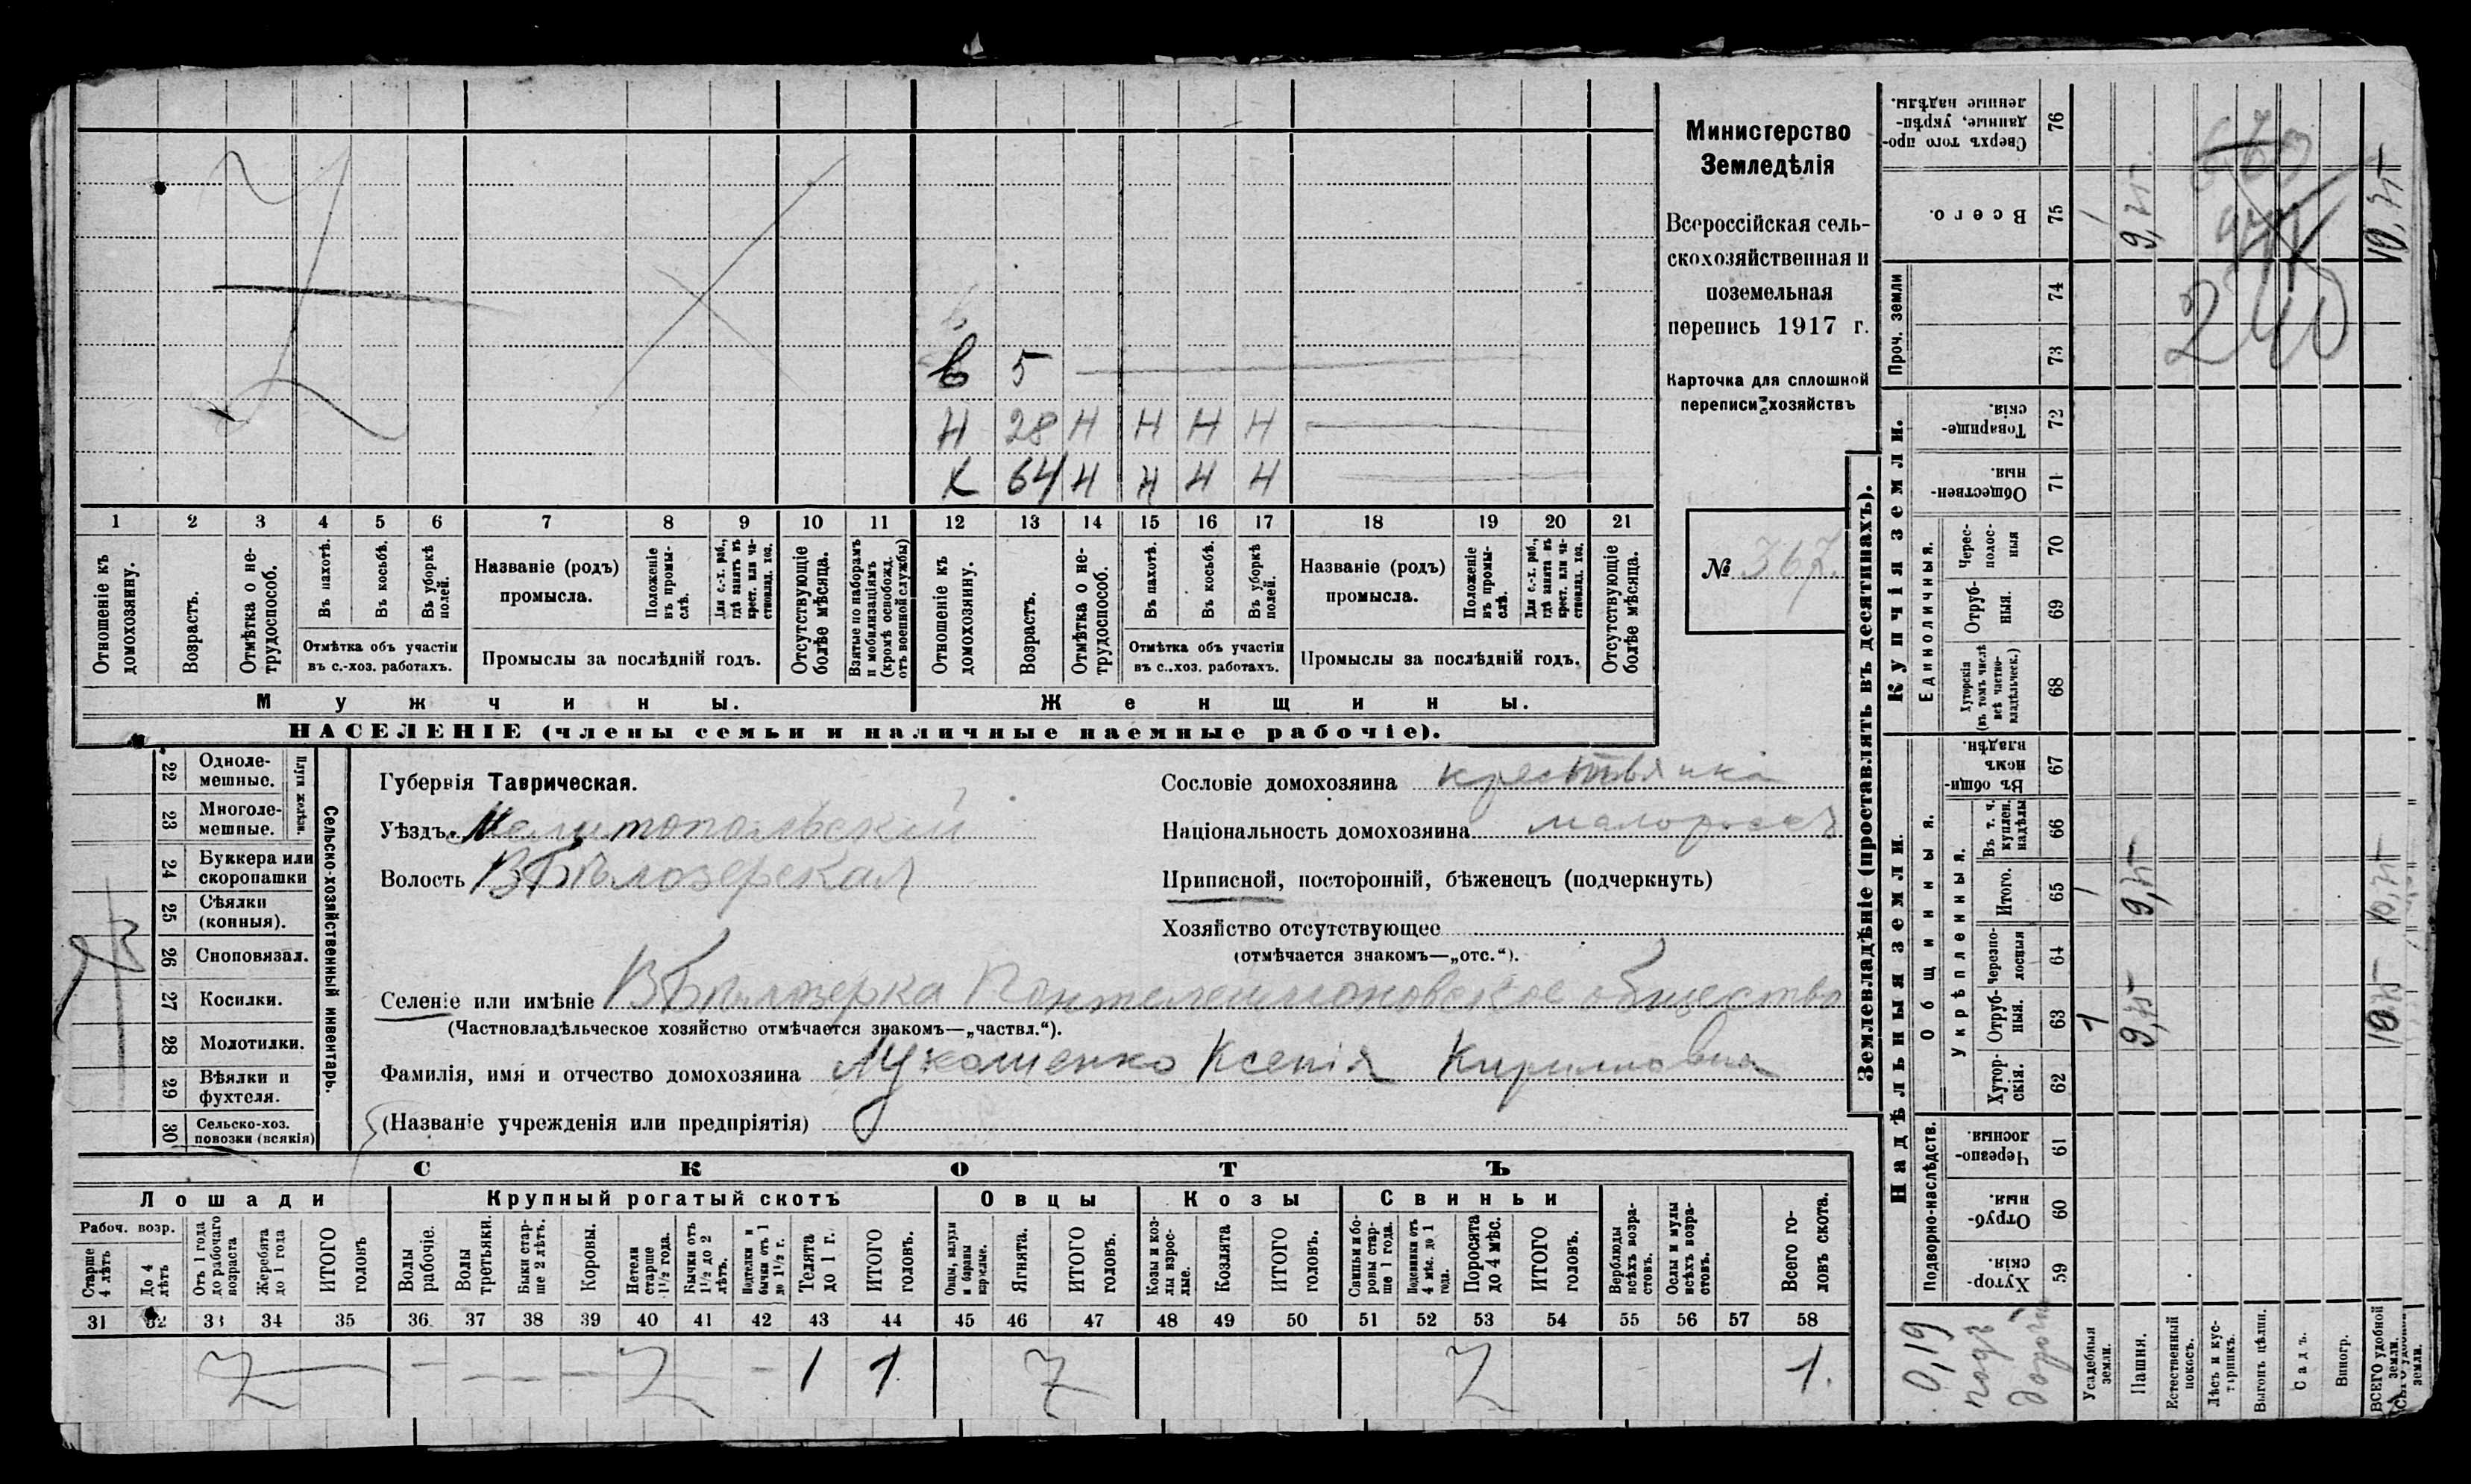 Министерство
Земледѣлія
Всероссійская сель-
скохозяйственная и
поземельная
перепись 1917 г.
Карточка для сплошной
переписи хозяйствъ
№ 367.
в 5
Н 28 Н Н Н Н
Х 64 Н Н Н Н
1 2 3 4 5 6 7 8 9 10 11 12 13 14 15 16 17 18 19 20 21
Отношеніе къ домохозяину.
Возрастъ.
Отмѣтка о не-трудоспособ.
Въ пахотѣ.
Въ косьбѣ.
Въ уборкѣ полей.
Отмѣтка объ участіи
въ с.-хоз. работахъ.
Названіе (родъ)
промысла.
Положеніе въ промы-слѣ.
Для с.-х. раб., гдѣ занятъ въ крест. или ча-стновлад. хоз.
Промыслы за послѣдній годъ.
Отсутствующіе болѣе мѣсяца.
Взятые по наборамъ и мобилизаціямъ (кромѣ освобожд. отъ военной службы)
Отношеніе къ домохозяину.
Возрастъ.
Отмѣтка о не-трудоспособ.
Въ пахотѣ.
Въ косьбѣ.
Въ уборкѣ полей.
Отмѣтка объ участіи
въ с.-хоз. работахъ.
Названіе (родъ)
промысла.
Положеніе въ промы-слѣ.
Для с.-х. раб., гдѣ занята въ крест. или ча-стновлад. хоз.
Промыслы за послѣдній годъ.
Отсутствующіе болѣе мѣсяца.
Мужчины.
Женщины.
НАСЕЛЕНІЕ (члены семьи и наличные наемные рабочіе).
22 Одноле-мешные.
23 Многоле-мешные.
Плуги желѣзн.
24 Буккера или скоропашки
25 Сѣялки (конныя).
26 Сноповязал.
27 Косилки.
28 Молотилки.
29 Вѣялки и фухтеля.
30 Сельско-хоз. повозки (всякія)
Сельско-хозяйственный инвентарь.
Губернія Таврическая.
Уѣздъ Мелитопольскій
Волость В Бѣлозерская
Селеніе или имѣніе В Бѣлозерка Пантелеимоновское общество
(Частновладѣльческое хозяйство отмѣчается знакомъ—„частвл.“).
Фамилія, имя и отчество домохозяина Лукашенко Ксенія Кирилловна
(Названіе учрежденія или предпріятія)
Сословіе домохозяина крестьянка
Національность домохозяина малороссъ
Приписной, посторонній, бѣженецъ (подчеркнуть)
Хозяйство отсутствующее
(отмѣчается знакомъ—„отс.“).
СКОТЪ
Лошади
Крупный рогатый скотъ
Овцы
Козы
Свиньи
Рабоч. возр.
Старше 4 лѣтъ
До 4 лѣтъ
Отъ 1 года до рабочаго возраста
Жеребята до 1 года
ИТОГО головъ
Волы рабочіе.
Волы третьяки.
Быки стар-ше 2 лѣтъ.
Коровы.
Нетели старше 1 1/2 года.
Бычки отъ 1 1/2 до 2 лѣтъ.
Подтелки и бычки отъ 1 до 1 1/2 г.
Телята до 1 г.
ИТОГО головъ.
Овцы, валухи и бараны взрослые.
Ягнята.
ИТОГО головъ.
Козы и коз-лы взрос-лые.
Козлята
ИТОГО головъ.
Свиньи и бо-ровы стар-ше 1 года.
Подсвинки отъ 4 мѣс. до 1 года.
Поросята до 4 мѣс.
ИТОГО головъ.
Верблюды всѣхъ возра-стовъ.
Ослы и мулы всѣхъ возра-стовъ.
Всего го-ловъ скота.
31 32 33 34 35 36 37 38 39 40 41 42 43 44 45 46 47 48 49 50 51 52 53 54 55 56 57 58
1 1 1.
Землевладѣніе (проставлять въ десятинахъ).
Купчія земли.
Надѣльныя земли.
Сверхъ того про-данные, укрѣп-ленные надѣлы. 76
Всего. 75
Проч. земли 74 73
Товарище-скія. 72
Обществен-ныя. 71
Единоличныя.
Черес-полос-ныя 70
Отруб-ныя. 69
Хуторскія (въ томъ числѣ всѣ частно-владѣльческ.) 68
Общинныя.
Въ общи-номъ владѣн. 67
Укрѣпленныя.
Въ т. ч. куплен. надѣлы 66
Итого. 65
Черезпо-лосныя 64
Отруб-ныя. 63
Хутор-скія. 62
Подворно-наслѣдств.
Черезпо-лосныя 61
Отруб-ныя. 60
Хутор-скія 59
0,19
подъ
дорогой
Усадебныя земли.
Пашня.
Естественный покосъ.
Лѣсъ и кус-тарникъ.
Выгонъ цѣлин.
Садъ.
Виногр.
ВСЕГО удобной земли.
240